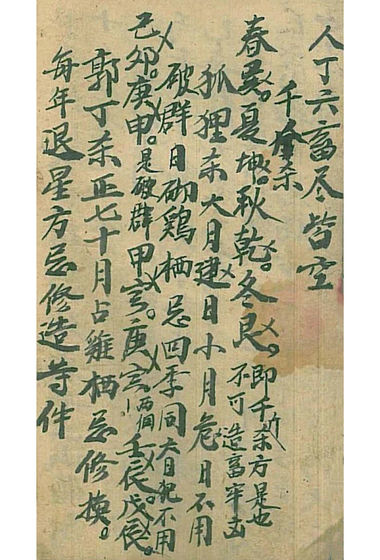 人丁六畜尽皆空
千杀
春巽。夏坤。秋乾。冬艮。即千斤杀方是也
不可造畜牢
狐狸杀大月建日小月危日不用
破群日砌鷄栖忌四季同大日犯不用
己卯。庚申。是破群甲寅。庚寅。壬辰戊辰。
郭丁杀正七十月占雞栖忌修换。
每年退星方忌修造等件